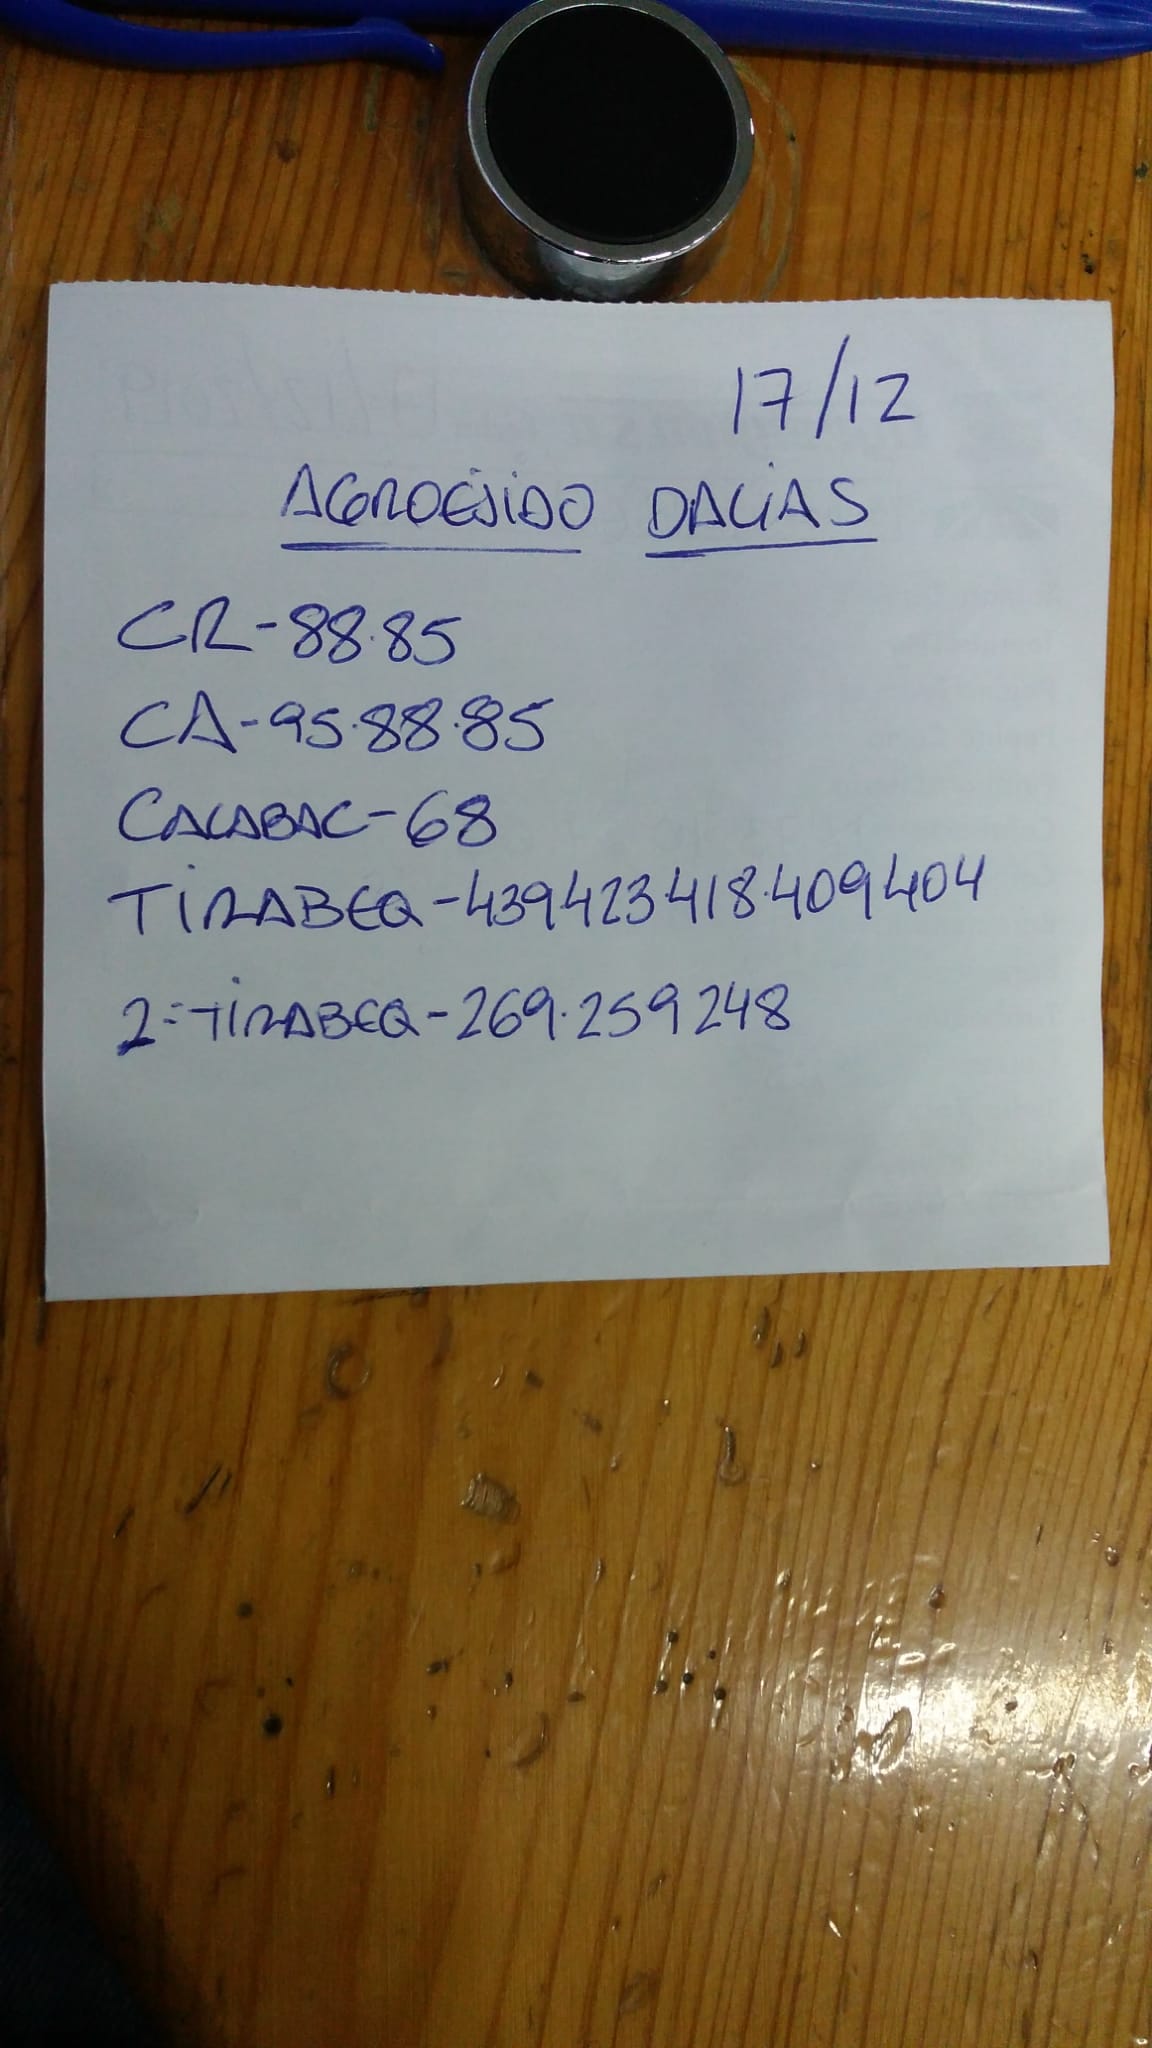 17/12
AGROEJIDO DALÍAS
CR-88.85
CA-95.88.85
CALABAC-68
TIRABEQ-439 423 418.409 404
2=TIRABEQ-269.259 248